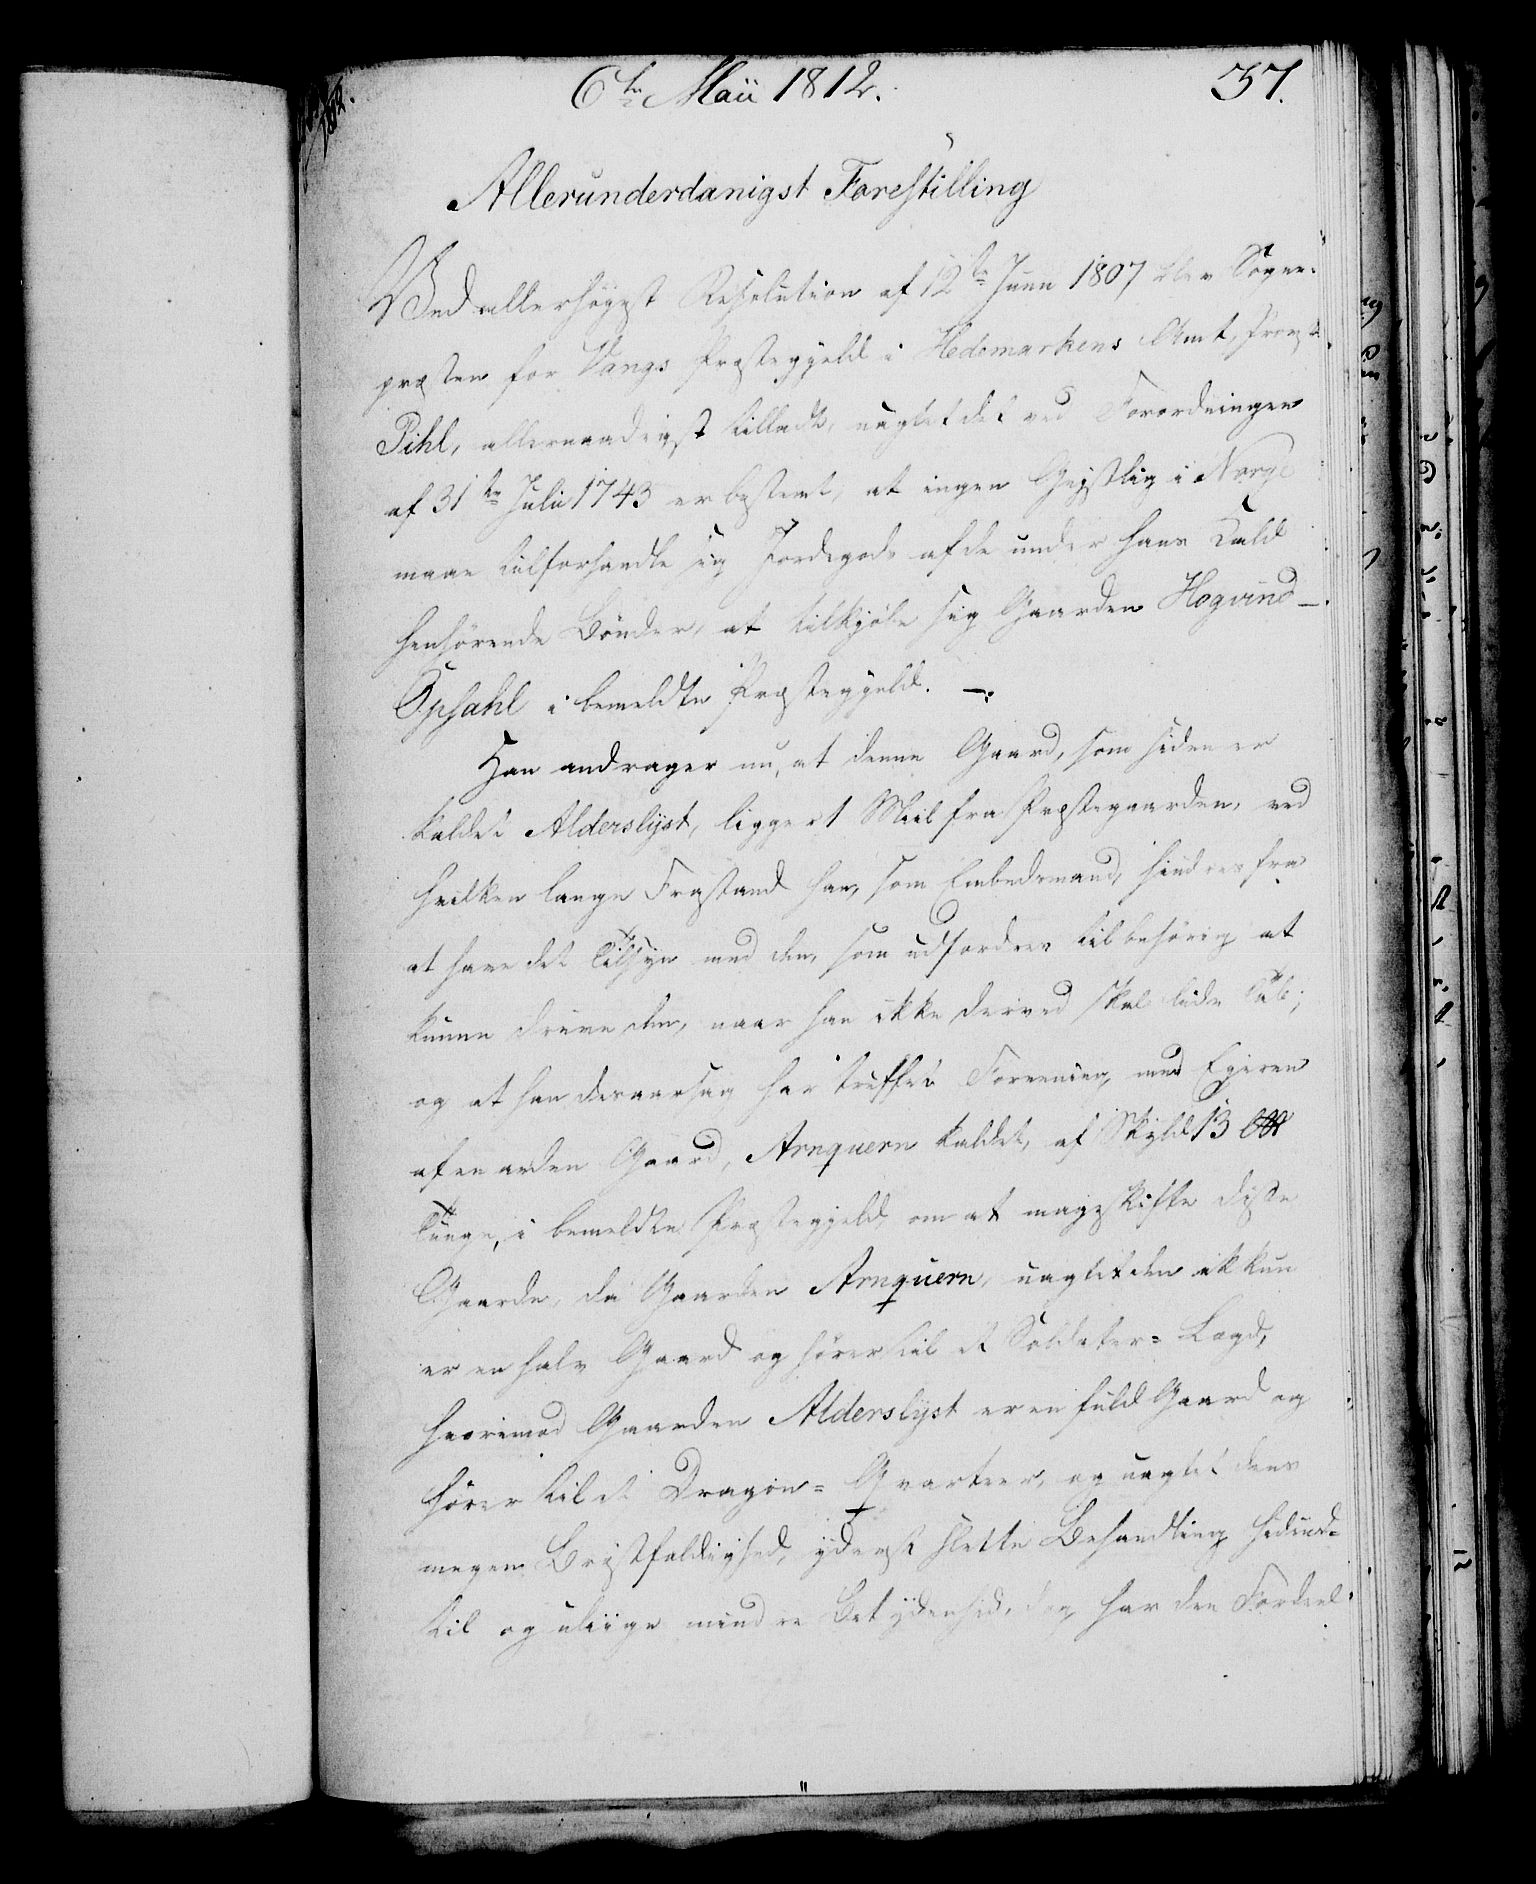 6te Maii 1812.
37.
Allerunderdanigst Forestilling
Ved allerhøyest Resolution af 12te Junii 1807 blev Sogne-
præsten for Vangs Præstegjeld i Hedemarkens Amt, Provst
Pihl, allernaadigst tilladt, uagtet det ved Forordningen
af 31te Julii 1743 er bestemt, at ingen Gejstlig i Norge
maae tilforhandle sig Jordegods af de under hans Kald
henhørende Bønder, at tilkjøbe sig Gaarden Hogvind-
Opsahl i bemeldte Præstegjeld. -.
Han andrager nu, at denne Gaard, som siden er
kaldet Alderslyst, ligger 1 Miil fra Præstegaarden, ved
hvilken lange Frastand han, som Embedsmand, hindres fra
at have det Tilsyn med den, som udfordres til behørig at
kunne drive den, naar han ikke derved skal lide Tab;
og at han desaarsag har truffet Foreening med Ejeren
af en anden Gaard, Arnquern kaldet, af Skyld 13
Tunge, i bemeldte Præstegjeld, om at mageskifte disse
Gaarde, da Gaarden Arnquern, uagtet den ikkun
er en halv Gaard og hører til et Soldater= Lægd,
hvorimod Gaarden Alderslyst er en fuld Gaard og
hører til et Dragon= Qvarteer, og uagtet dens
megen Brøstfældighed, yderst slette Behandling hidind-
til og uliige mindre Betydenhed, dog har den Fordeel